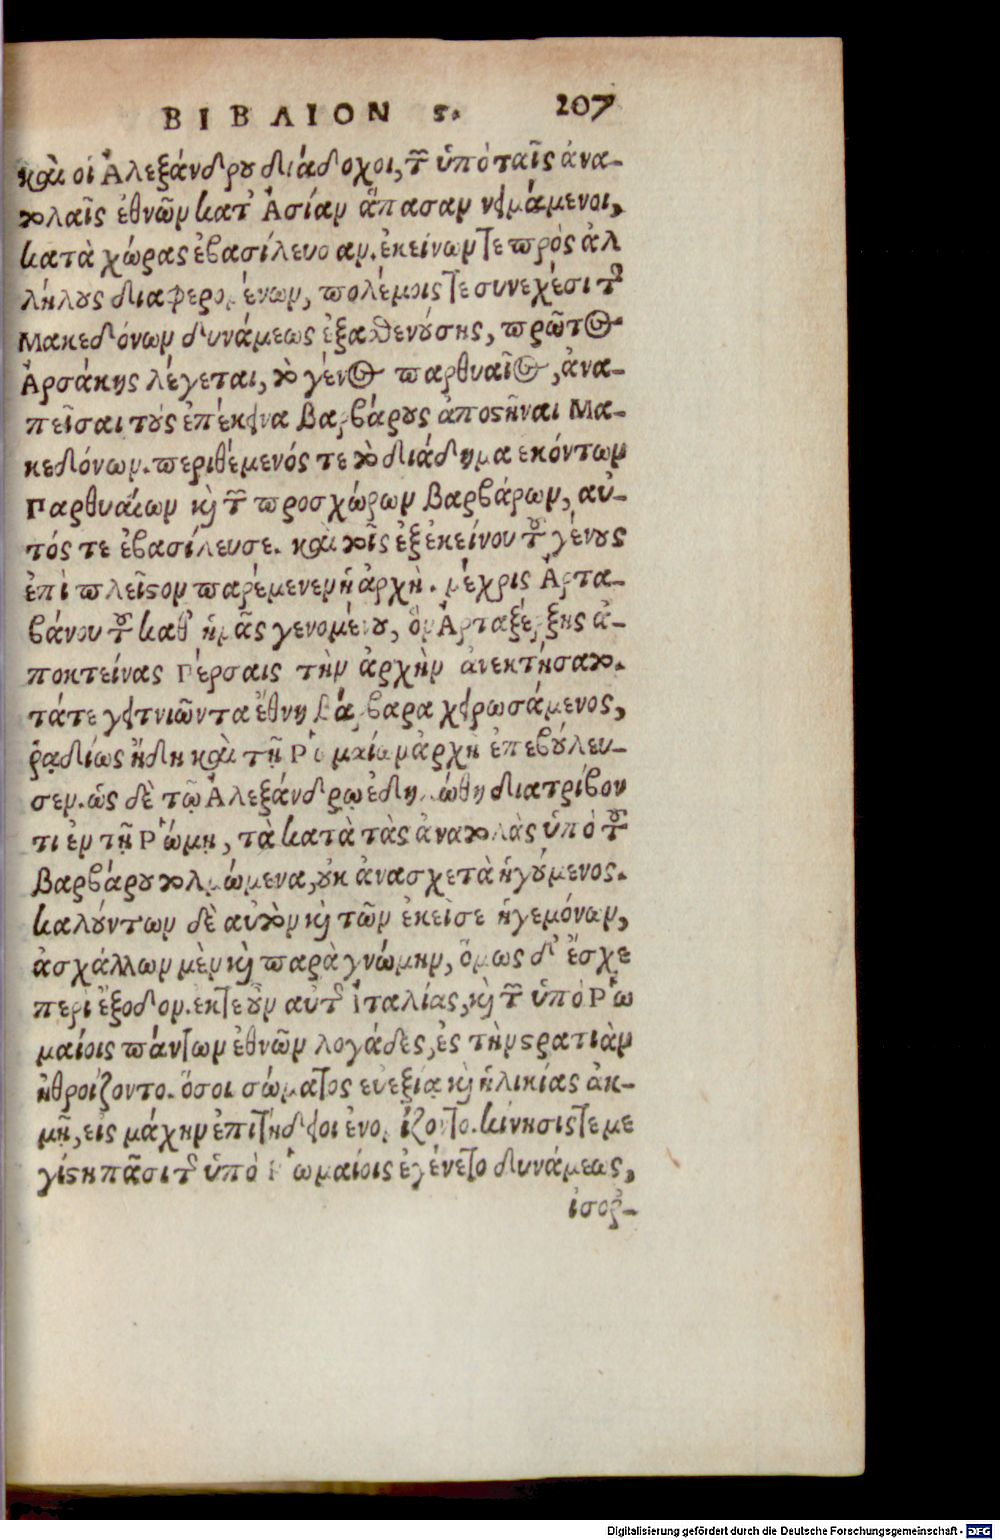 ΒΙΒΛΙΟΝ ϛ. 207
καὶ οἱ Ἀλεξάνδρου διάδοχοι, τῶν ὑπὸ ταῖς ἀνα-
τολαῖς ἐθνῶν κατ' Ἀσίαν ἅπασαν νειμάμενοι,
κατὰ χώρας ἐβασίλευσαν. ἐκείνων τε πρὸς ἀλ
λήλους διαφερομένων, πολέμοις τε συνεχέσι τῆς
Μακεδόνων δυνάμεως ἐξασθενούσης, πρῶτος
Ἀρσάκης λέγεται, τὸ γένος παρθυαῖος, ἀνα-
πεῖσαι τοὺς ἐπέκεινα βαρβάρους ἀποστῆναι Μα-
κεδόνων. περιθέμενός τε τὸ διάδημα ἑκόντων
Παρθυαίων καὶ τῶν προσχώρων βαρβάρων, αὐ-
τός τε ἐβασίλευσε. καὶ τοῖς ἐξ ἐκείνου τοῦ γένους
ἐπὶ πλεῖστον παρέμενεν ἡ ἀρχὴ. μέχρις Ἀρτα-
βάνου τοῦ καθ' ἡμᾶς γενομένου, ὃν Ἀρταξέρξης ἀ-
ποκτείνας Πέρσαις τὴν ἀρχὴν ἀνεκτήσατο.
τάτε γειτνιῶντα ἔθνη βάρβαρα χειρωσάμενος,
ῥᾳδίως ἤδη καὶ τῇ Ῥωμαίων ἀρχῇ ἐπεβούλευ-
σεν. ὡς δὲ τῷ Ἀλεξάνδρῳ ἐδηλώθη διατρίβον
τι ἐν τῇ Ῥώμῃ, τὰ κατὰ τὰς ἀνατολὰς ὑπὸ τοῦ
βαρβάρου τολμώμενα, οὐκ ἀνασχετὰ ἡγούμενος.
καλούντων δὲ αὐτὸν καὶ τῶν ἐκεῖσε ἡγεμόνων,
ἀσχάλλων μὲν καὶ παρὰ γνώμην, ὅμως δ' ἔσχε
περὶ ἔξοδον. ἔκ τε οὖν αὐτῆς Ἰταλίας, καὶ τῶν ὑπὸ Ῥω
μαίοις πάντων ἐθνῶν λογάδες, ἐς τὴν στρατιὰν
ἠθροίζοντο. ὅσοι σώματος εὐεξίᾳ καὶ ἡλικίας ἀκ-
μῇ, εἰς μάχην ἐπιτήδειοι ἐνομίζοντο. κίνησίς τε με
γίστη πᾶσι τῆς ὑπὸ Ῥωμαίοις ἐγένετο δυνάμεως,
ἰσορ-
Digitalisierung gefördert durch die Deutsche Forschungsgemeinschaft - DFG